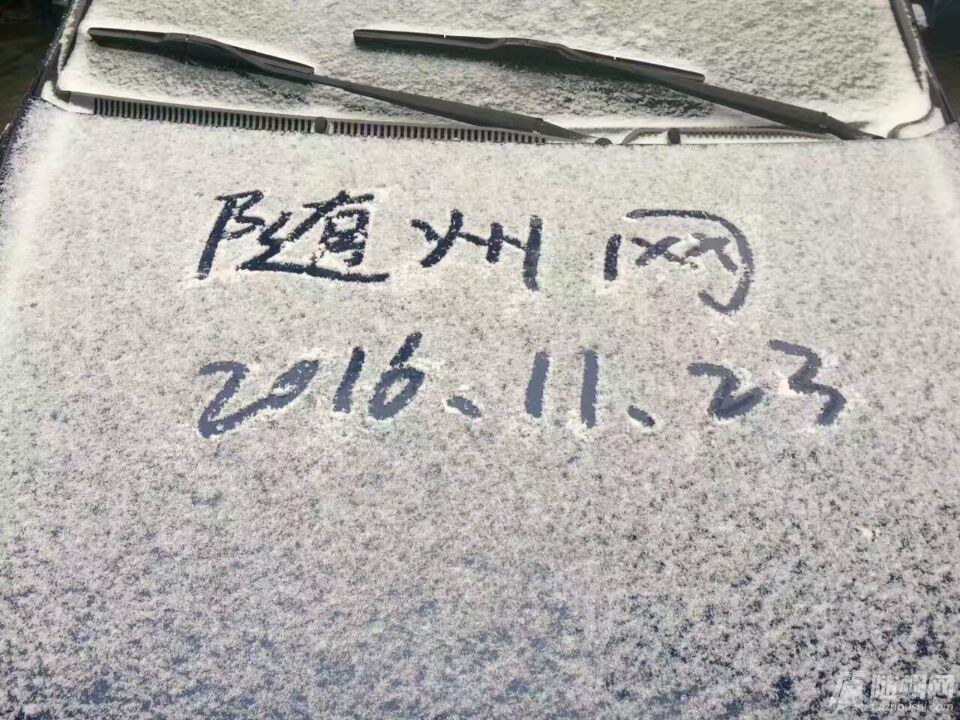 随州网
2016.11.23
随州网
suizhoushi.com